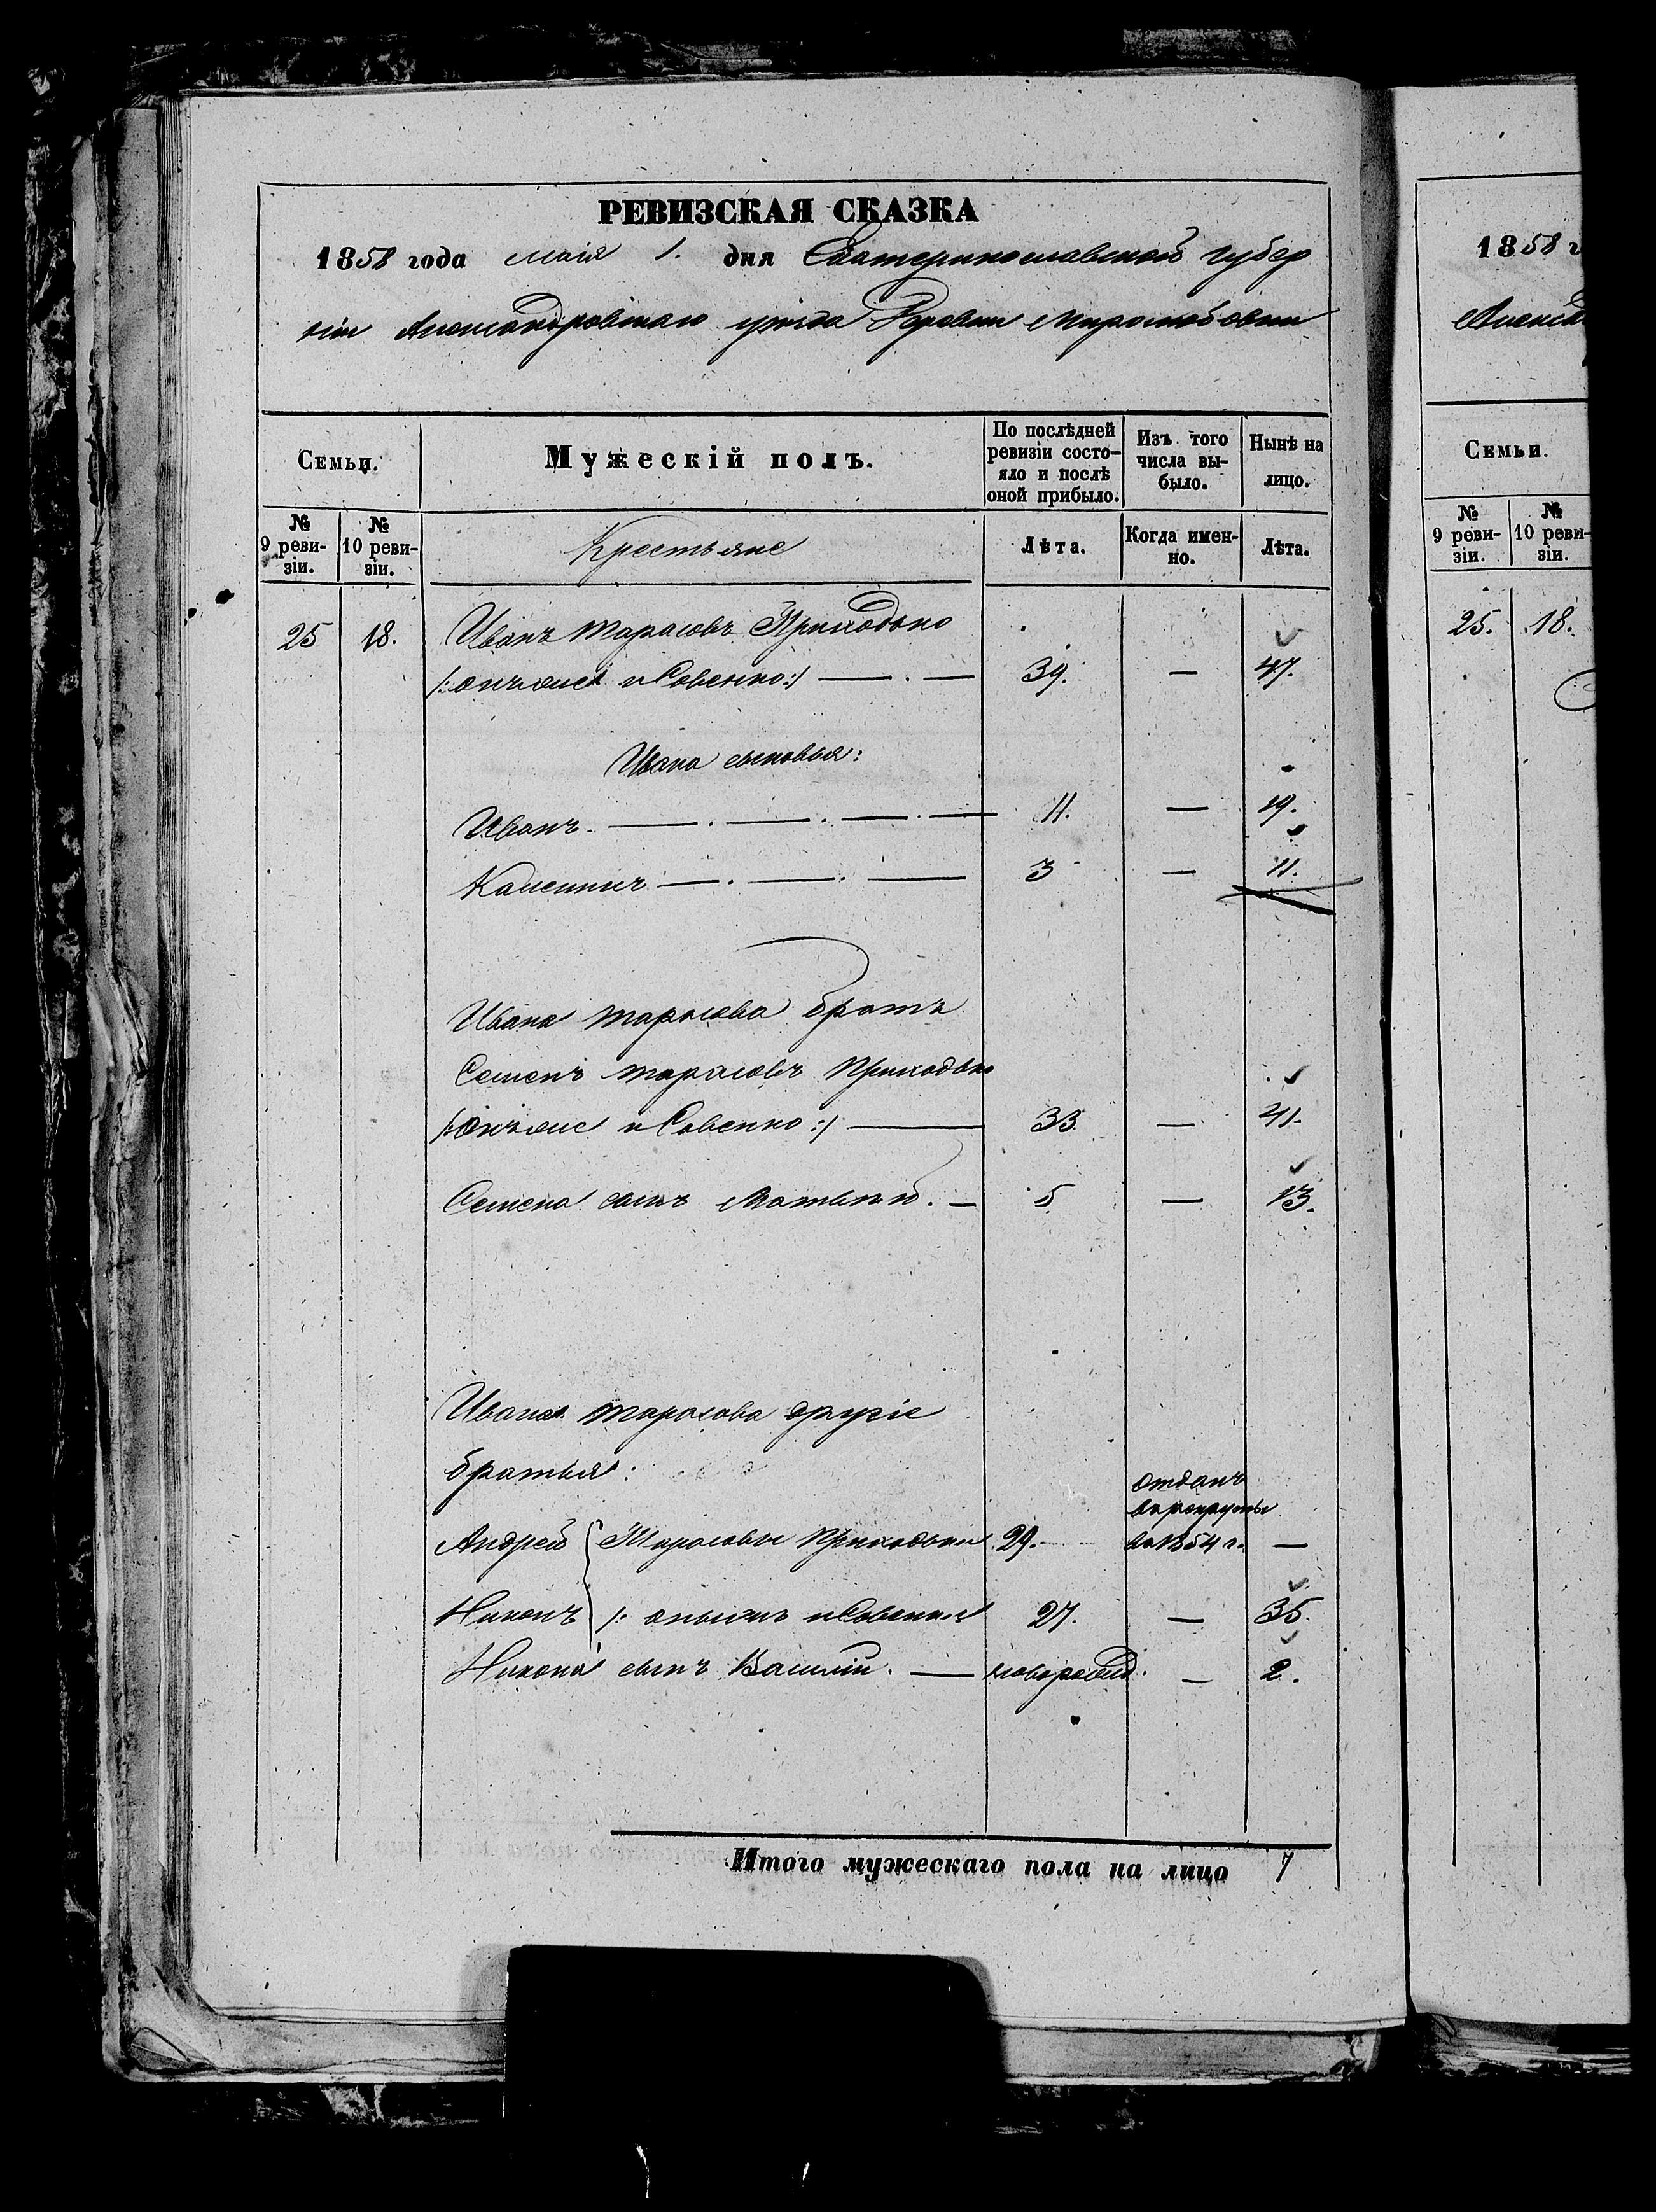 РЕВИЗСКАЯ СКАЗКА
1858 года маія 1. дня Екатеринославской губер
ніи Александровскаго уѣзда деревни Миролюбовки
Семьи.
Мужескій полъ.
По послѣдней ревизіи состо-яло и послѣ оной прибыло.
Изъ того числа вы-было.
Нынѣ на лицо.
№ 9 реви-зіи.
№ 10 реви-зіи.
Крестьяне
Лѣта.
Когда имен-но.
Лѣта.
25 18. Иванъ Тарасовъ Приходько
/: онъ же и Совенко :/ 39. — 47.
Ивана сыновья:
Иванъ. 11. — 19.
Калешникъ 3 — 11.
Ивана Тарасова братъ
Семенъ Тарасовъ Приходько
/: онъ же и Совенко :/ 33. — 41.
Семена сынъ Матвѣй. 5 — 13.
Ивана Тарасова другіе
братья:
отданъ
в рекруты
Андрей { Тарасовы Приходьки 29. в 1854 г. —
Никонъ /: они же и Совенки 27. — 35.
Никона сынъ Василій. новорожд. — 2.
Итого мужескаго пола на лицо 7
1858 г
Алекса
Семьи.
№ 9 реви-зіи.
№ 10 реви-зіи.
25. 18.